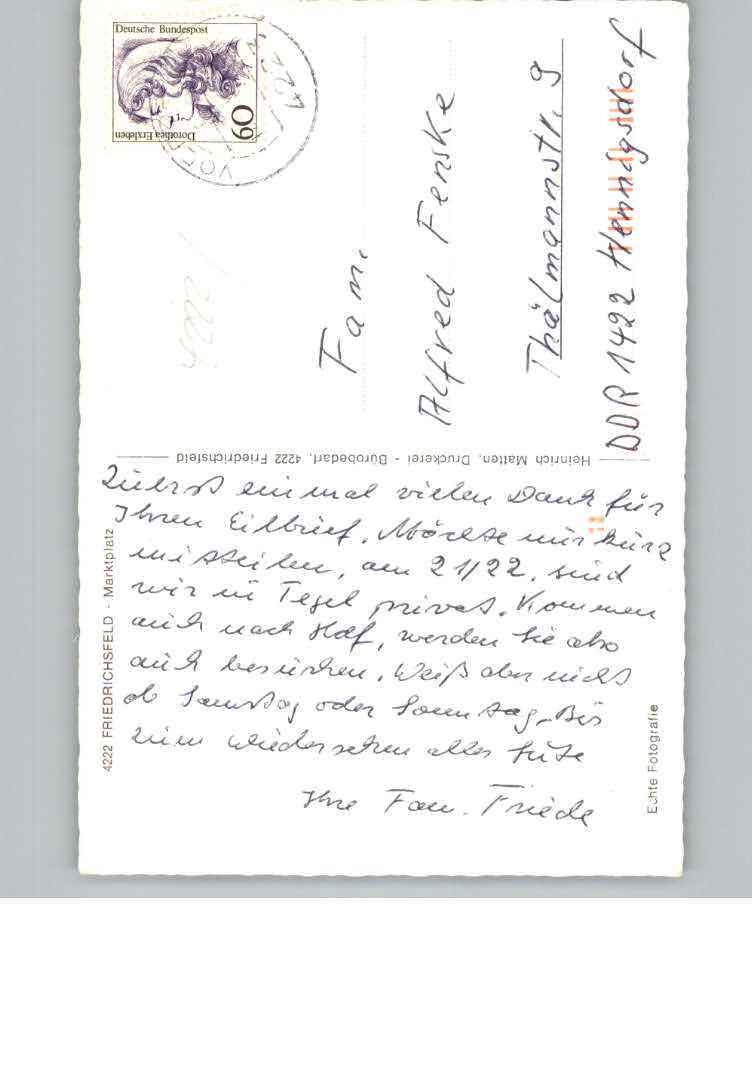 Deutsche Bundespost
Dorothea Erxleben
60
Fam.
Alfred Fenske
Thälmannstr. 9
DDR 1422 Hennigsdorf
Heinrich Matten, Druckerei - Bürobedarf, 4222 Friedrichsfeld
4222 FRIEDRICHSFELD - Marktplatz
Echte Fotografie
Zuerst einmal vielen Dank für
Ihren Eilbrief. Möchte nur kurz
mitteilen, am 21/22. sind
wir in Tegel privat. Kommen
auch nach Hdf, werden Sie also
auch besuchen. Weiß aber nicht
ob Samstag oder Sonntag. Bis
zum Wiedersehen alles Gute
Ihre Fam. Friede